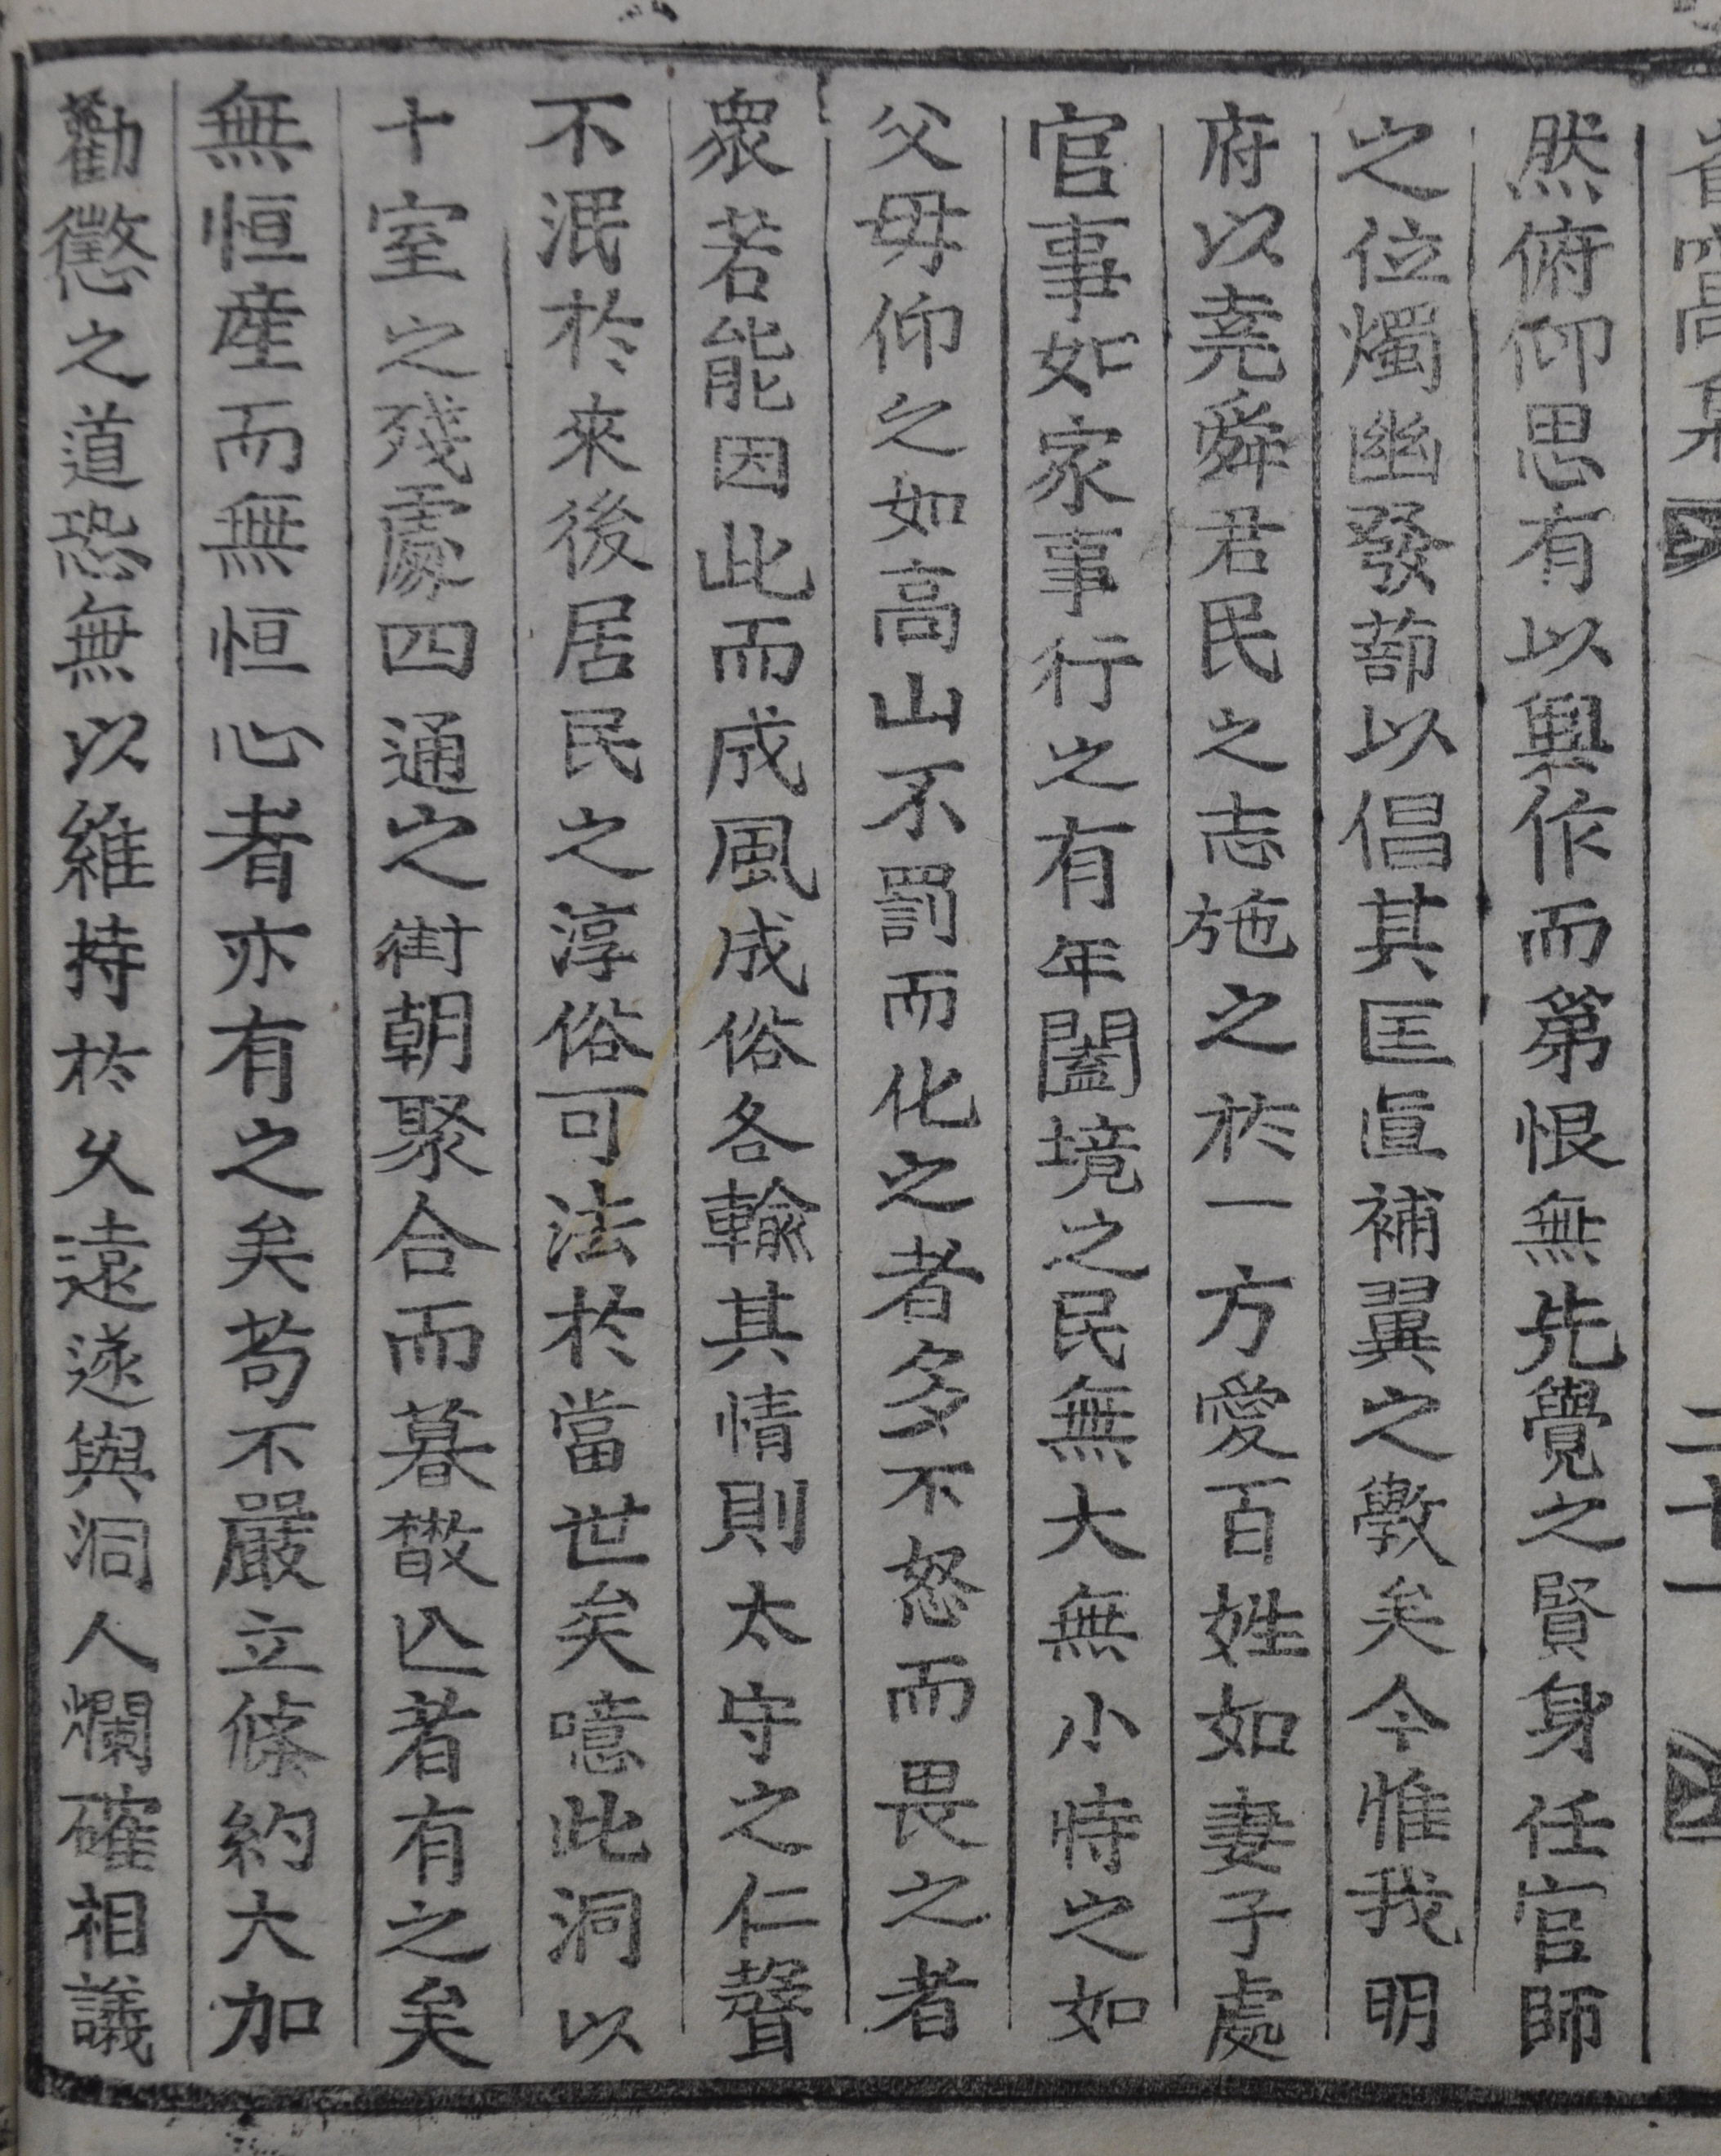 然俯仰思有以興作而第恨無先覺之賢身任官師
之位燭幽發蔀以倡其匡直補翼之敎矣今惟我明
府以堯舜君民之志施之於一方愛百姓如妻子處
官事如家事行之有年闔境之民無大無小恃之如
父母仰之如高山不罰而化之者多不怒而畏之者
衆若能因此而成風成俗各輸其情則太守之仁聲
不泯於來後居民之淳俗可法於當世矣噫此洞以
十室之殘處四通之街朝聚合而暮散亾者有之矣
無恒産而無恒心者亦有之矣苟不嚴立條約大加
勸懲之道恐無以維持於久遠遂與洞人爛確相議
二十一